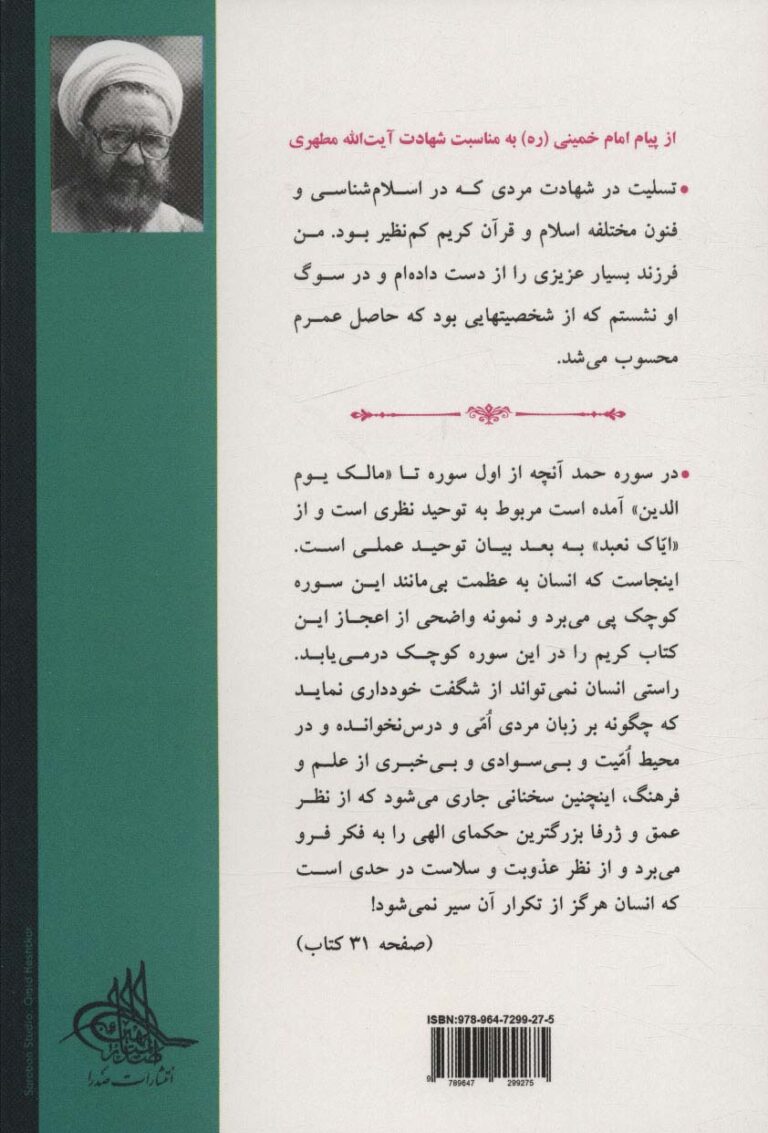 از پیام امام خمینی (ره) به مناسبت شهادت آیت‌الله مطهری
• تسلیت در شهادت مردی که در اسلام‌شناسی و
فنون مختلفه اسلام و قرآن کریم کم‌نظیر بود. من
فرزند بسیار عزیزی را از دست داده‌ام و در سوگ
او نشستم که از شخصیتهایی بود که حاصل عمرم
محسوب می‌شد.
• در سوره حمد آنچه از اول سوره تا «مالک یوم
الدین» آمده است مربوط به توحید نظری است و از
«ایّاک نعبد» به بعد بیان توحید عملی است.
اینجاست که انسان به عظمت بی‌مانند این سوره
کوچک پی می‌برد و نمونه واضحی از اعجاز این
کتاب کریم را در این سوره کوچک درمی‌یابد.
راستی انسان نمی‌تواند از شگفت خودداری نماید
که چگونه بر زبان مردی اُمّی و درس‌نخوانده و در
محیط اُمّیت و بی‌سوادی و بی‌خبری از علم و
فرهنگ، اینچنین سخنانی جاری می‌شود که از نظر
عمق و ژرفا بزرگترین حکمای الهی را به فکر فرو
می‌برد و از نظر عذوبت و سلاست در حدی است
که انسان هرگز از تکرار آن سیر نمی‌شود!
(صفحه ۳۱ کتاب)
انتشارات صدرا
ISBN:978-964-7299-27-5
9 789647 299275
Saroban Studio: Omid Heshtkar